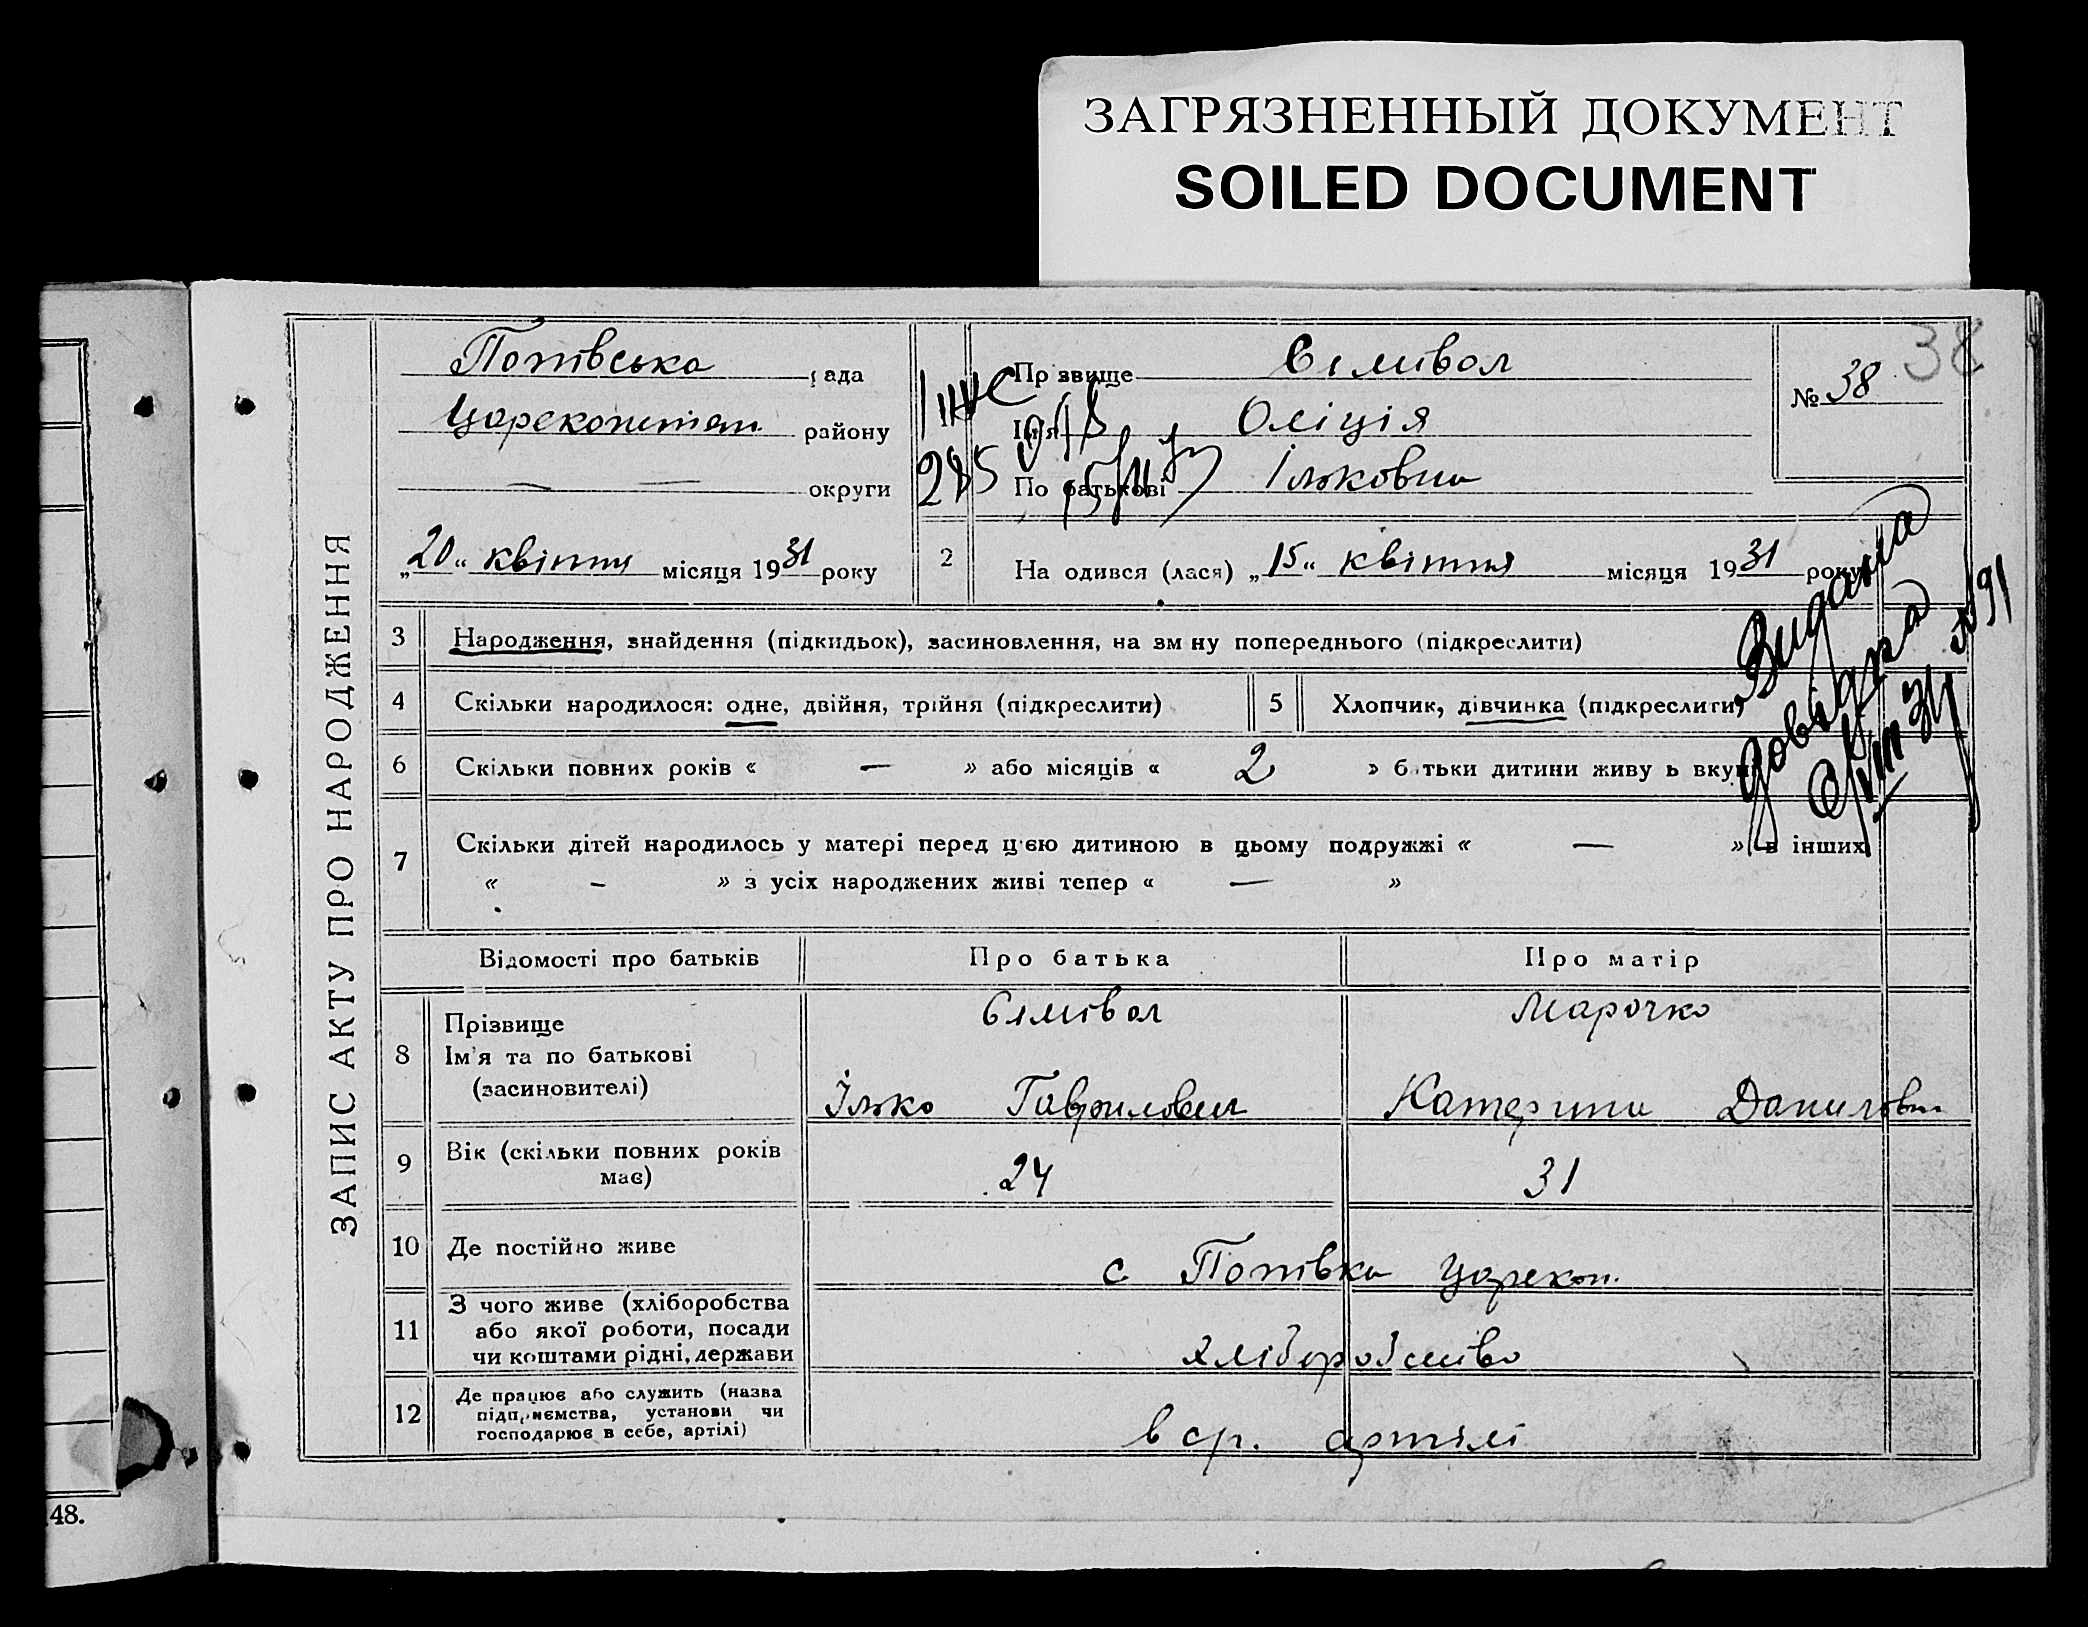 ЗАГРЯЗНЕННЫЙ ДОКУМЕНТ
SOILED DOCUMENT
ЗАПИС АКТУ ПРО НАРОДЖЕННЯ
Попівська рада
району
— — округи
„20“ квітня місяця 1931 року
Прізвище
Ім'я Оліція
По батькові Ільковна
№ 38
38
285
2 На одився (лася) „15“ квітня місяця 1931 року
Видана
довідка
№91
3 Народження, знайдення (підкидьок), засиновлення, на зм ну попереднього (підкреслити)
4 Скільки народилося: одне, двійня, трійня (підкреслити)
5 Хлопчик, дівчинка (підкреслити)
6 Скільки повних років « — » або місяців « 2 » батьки дитини живу ь вкупі
7 Скільки дітей народилось у матері перед ц'єю дитиною в цьому подружжі « — » в інших
« – » з усіх народжених живі тепер « — »
Відомості про батьків Про батька Про матір
8 Прізвище Марочко
Ім'я та по батькові
(засиновителі) Ілько Гаврилович Катерина Даниловн
9 Вік (скільки повних років
має) 24 31
10 Де постійно живе с Попівка Царекон.
11 З чого живе (хліборобства
або якої роботи, посади
чи коштами рідні, держави хліборобство
12 Де працює або служить (назва
підприємства, установи чи
господарює в себе, артілі) в ср. артілі
48.